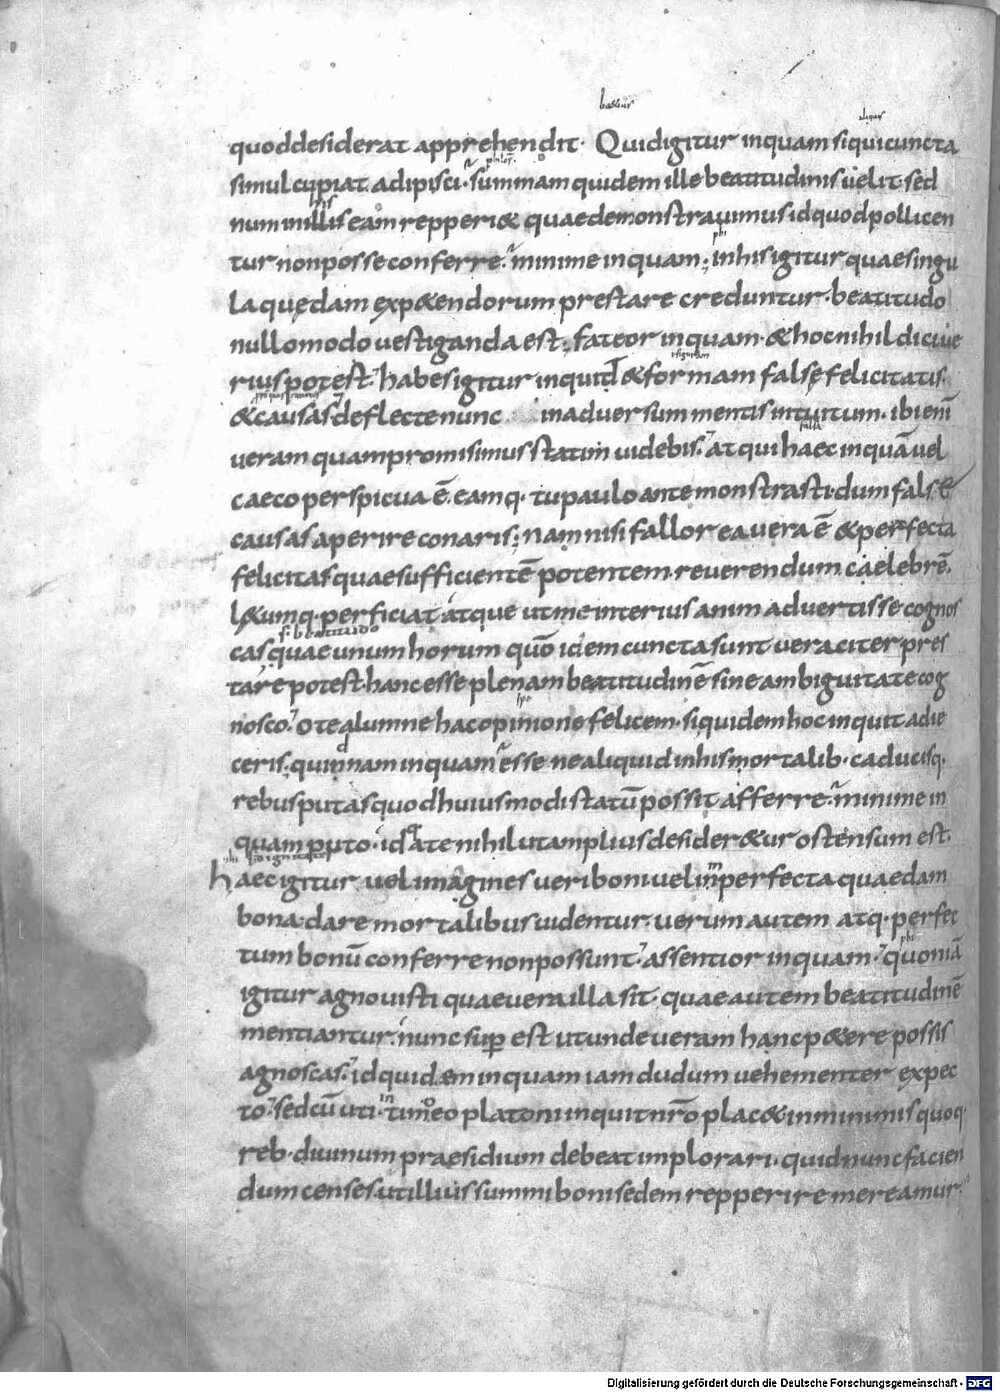 boetius
aliquis
quoddesiderat apprehendit· Quidigitur inquam siquicuncta
simul cupiat adipisci· summam quidem ille beatitudinis uelit sed
num in illis eam repperi& quaedemonstrauimus id quod pollicen
tur non posse conferre. minime inquam; in his igitur quae singu
la quędam exp&endorum prestare creduntur· beatitudo
nullomodo uestiganda est; fateor inquam· & hoc nihil dici ue
rius potest. habes igitur inquid & formam false felicitatis.
& causas deflecte nunc in aduersum mentis intuitum· ibi enī
ueram quam promisimus statim uidebis. at qui haec inquā uel
caeco perspicua ē. eamq· tu paulo ante monstrasti· dum falsę
causas aperire conaris; nam nisi fallor ea uera ē & perfecta
felicitas quae sufficientē potentem· reuerendum caelebrē.
l&umq· perficiat· atque ut me interius animaduertisse cognos
s· beatitudo
cas quae unum horum quō idem cuncta sunt ueraciter pres
tare potest· hanc esse plenam beatitudinē sine ambiguitate cog
nosco. o te alumne hac opinione felicem· siquidem hoc inquit adie
ceris; quidnam inquam esse ne aliquid in his mortalib· caducisq·
rebus putas quod huiusmodi statū possit afferre. minime in
quam puto· id a te nihil ut amplius desider&ur ostensum est·
haec igitur uel imagines ueri boni uel inperfecta quaedam
bona· dare mortalibus uidentur· uerum autem atq· perfec
tum bonū conferre non possunt. assentior inquam· quoniā
igitur agnouisti quae uera illa sit· quae autem beatitudinē
mentiantur· nunc sup̄ est ut unde ueram hanc p&ere possis
agnoscas. id quidem inquam iamdudum uehementer expec
to. sed cū uti in timeo platoni inquit nr̄o plac& in minimis quoq·
reb· diuinum praesidium debeat implorari· quid nunc facien
dum censes· ut illius summi boni sedem repperire mereamur.
Digitalisierung gefördert durch die Deutsche Forschungsgemeinschaft - DFG